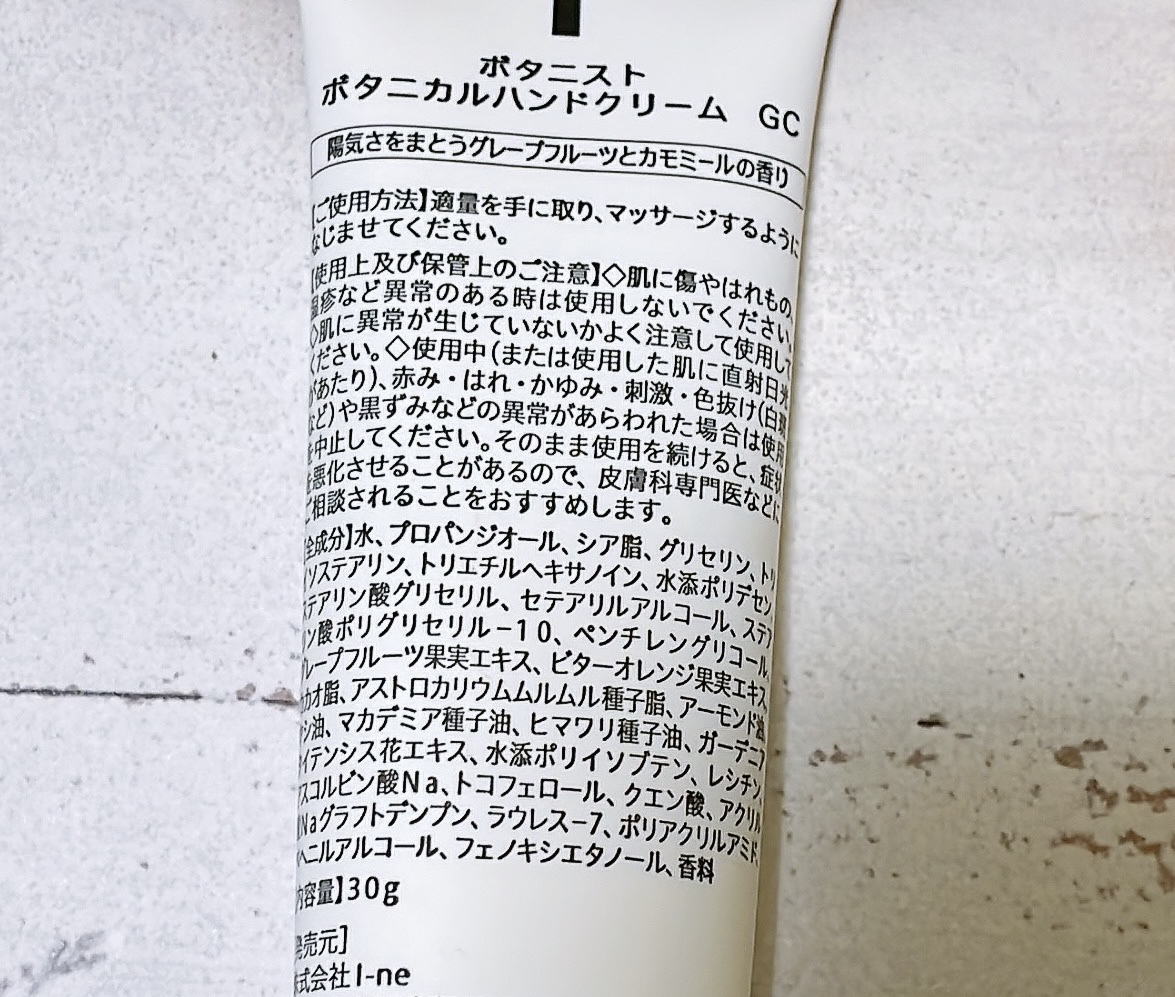 ボタニスト
ボタニカルハンドクリーム GC
陽気さをまとうグレープフルーツとカモミールの香り
ご使用方法】適量を手に取り、マッサージするように
なじませてください。
【使用上及び保管上のご注意】◇肌に傷やはれもの、
湿疹など異常のある時は使用しないでください。
◇肌に異常が生じていないかよく注意して使用して
ください。◇使用中(または使用した肌に直射日光
があたり)、赤み・はれ・かゆみ・刺激・色抜け(白斑
など)や黒ずみなどの異常があらわれた場合は使用
を中止してください。そのまま使用を続けると、症状
を悪化させることがあるので、皮膚科専門医などに
ご相談されることをおすすめします。
全成分】水、プロパンジオール、シア脂、グリセリン、トリ
イソステアリン、トリエチルヘキサノイン、水添ポリデセン、
ステアリン酸グリセリル、セテアリルアルコール、ステア
リン酸ポリグリセリル-10、ペンチレングリコール、
グレープフルーツ果実エキス、ビターオレンジ果実エキス、
カカオ脂、アストロカリウムムルムル種子脂、アーモンド油、
シ油、マカデミア種子油、ヒマワリ種子油、ガーデニア
イテンシス花エキス、水添ポリイソブテン、レシチン、
アスコルビン酸Na、トコフェロール、クエン酸、アクリル
酸Naグラフトデンプン、ラウレス-7、ポリアクリルアミド、
ヘニルアルコール、フェノキシエタノール、香料
内容量】30g
発売元]
株式会社I-ne